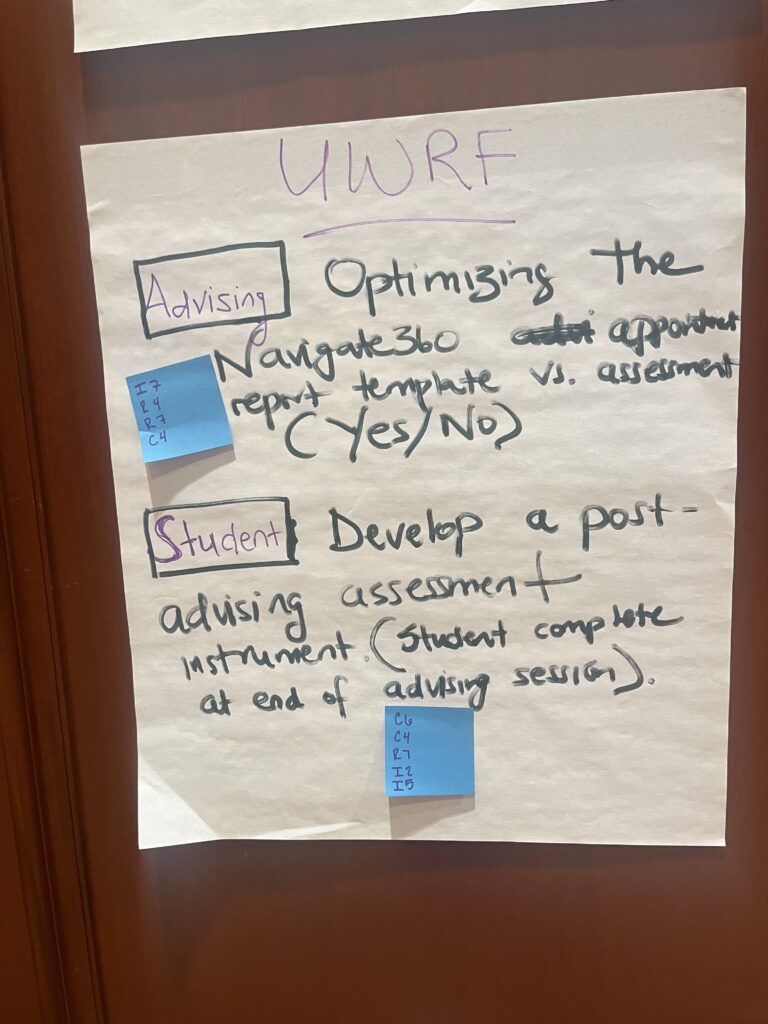 UWRF
Advising Optimizing the
Navigate360 appointment
report template vs. assessment
(Yes/No)
I7
R4
R7
C4
Student Develop a post-
advising assessment
instrument. (Student complete
at end of advising session).
C6
C4
R7
I2
I5